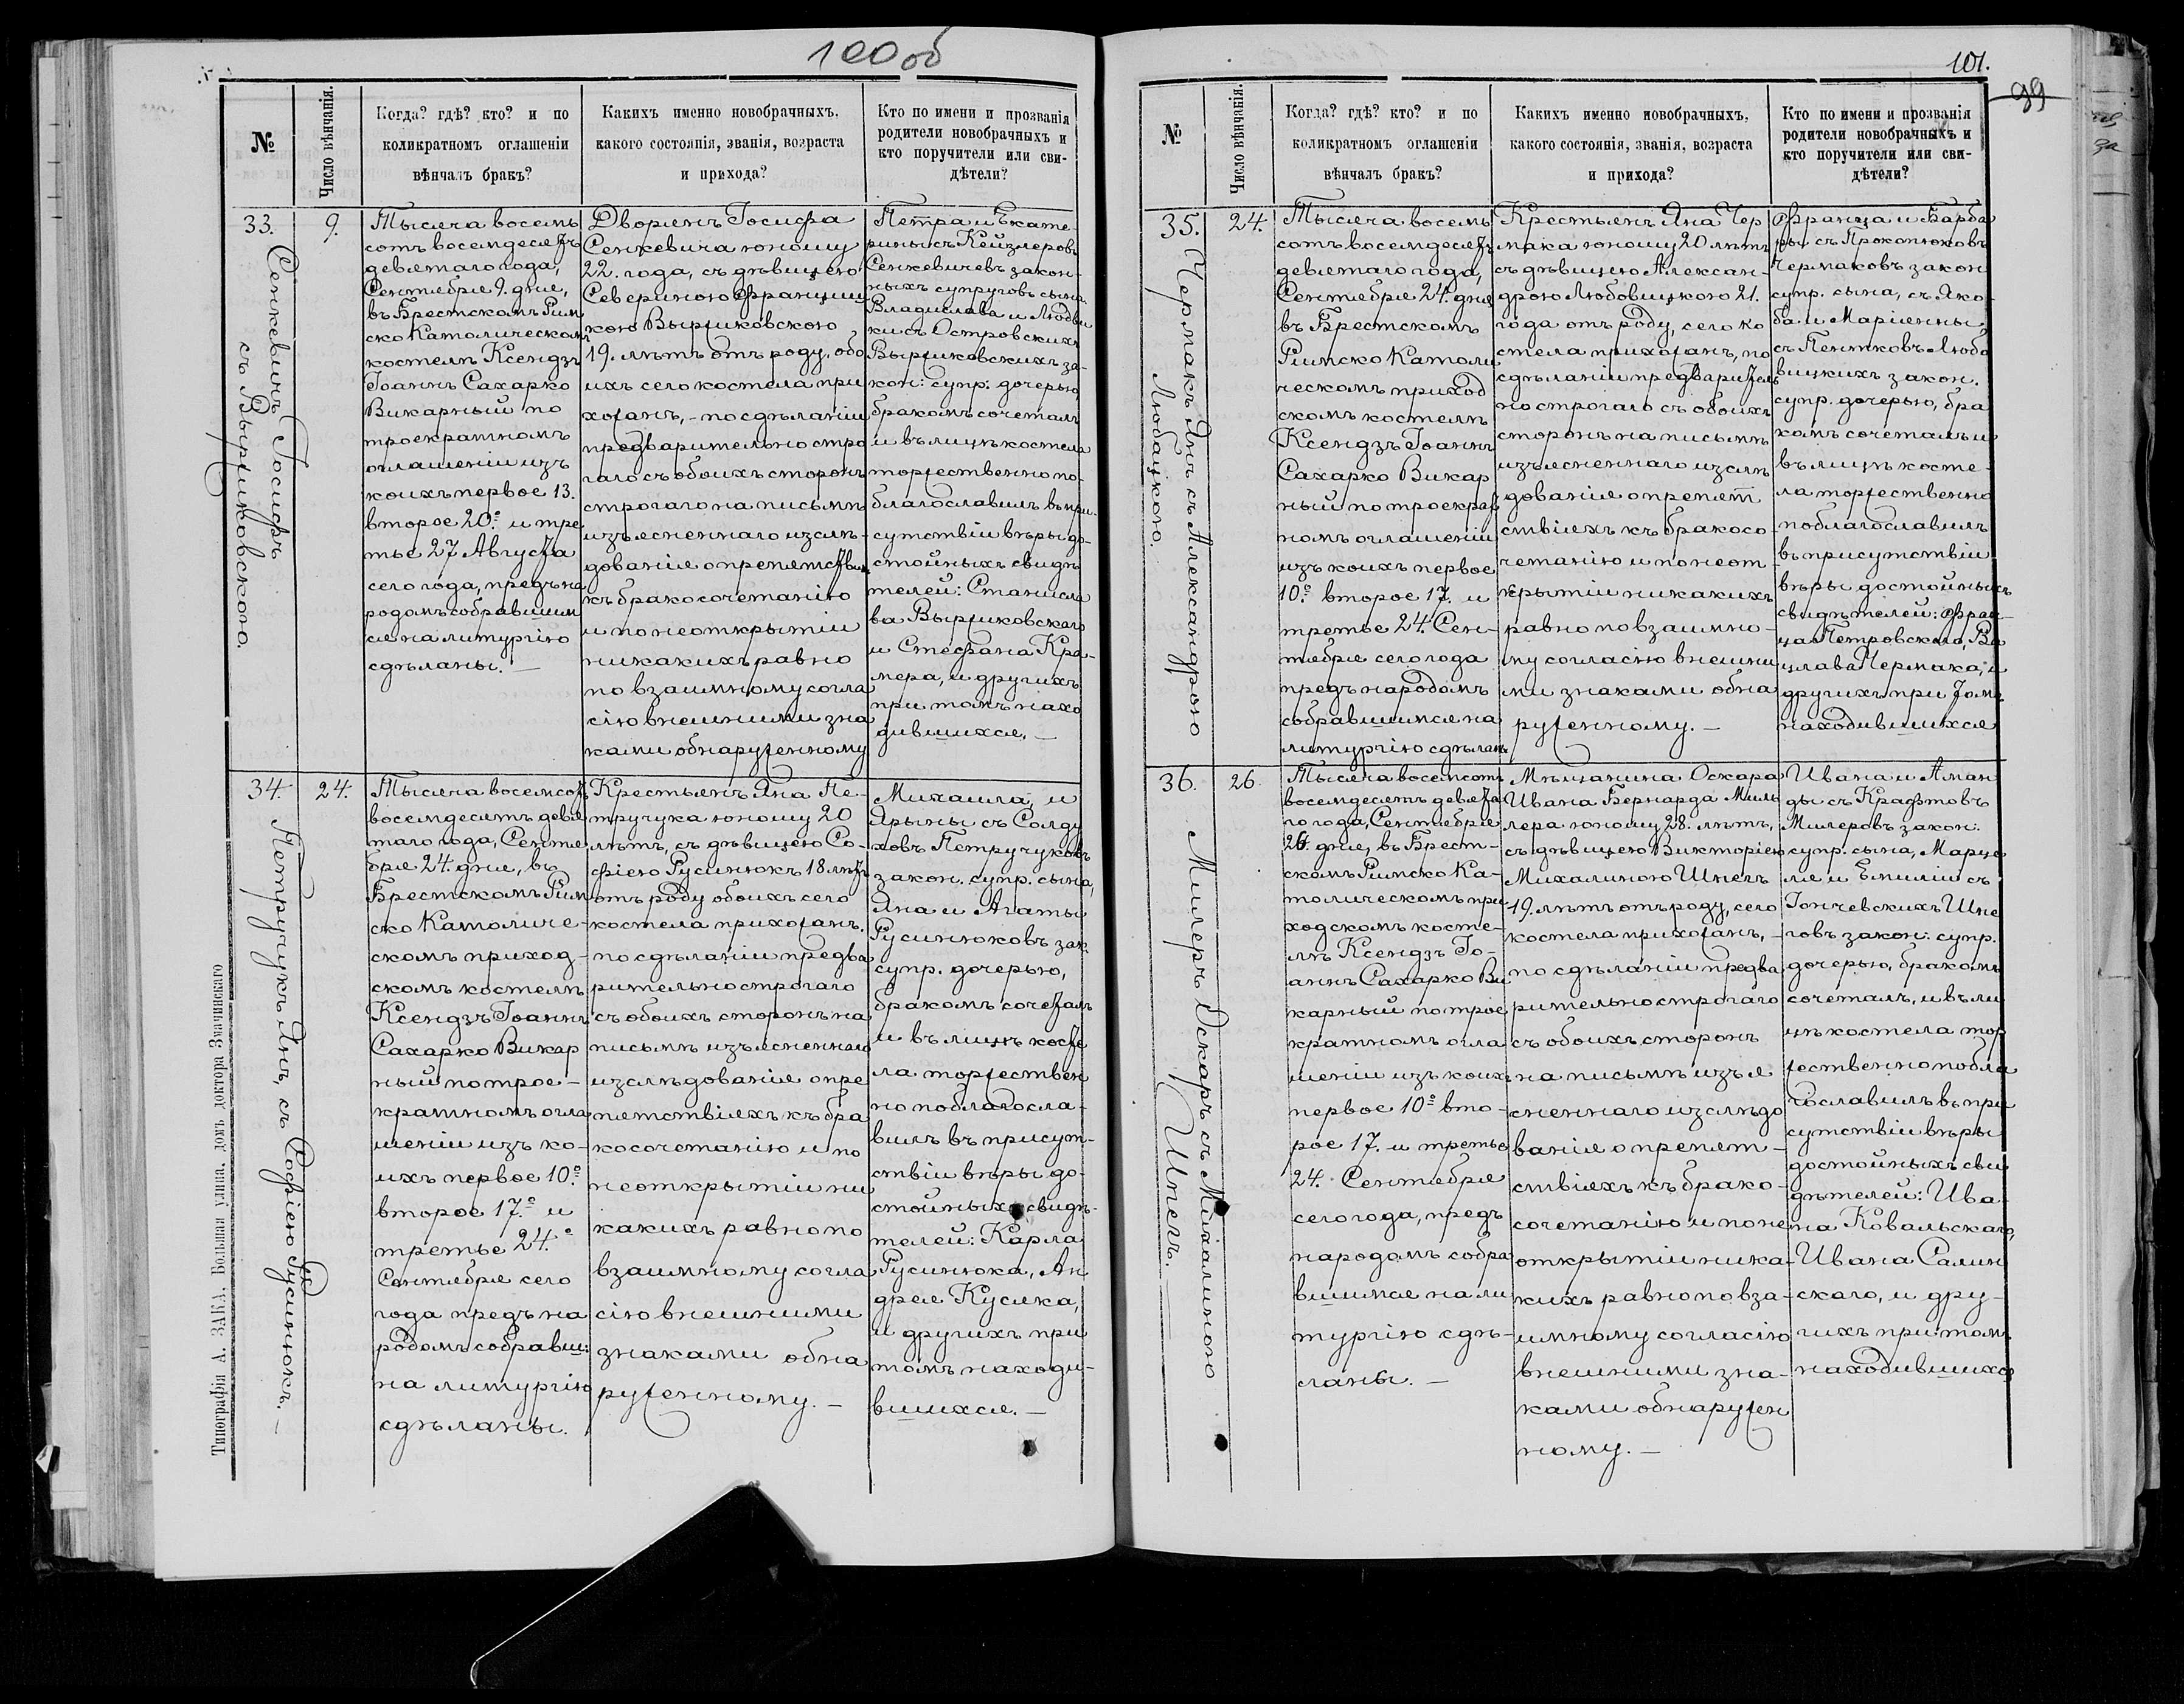 100 об
№
Число вѣнчанія.
Когда? гдѣ? кто? и по
коликратномъ оглашеніи
вѣнчалъ бракъ?
Какихъ именно новобрачныхъ,
какого состоянія, званія, возраста
и прихода?
Кто по имени и прозванія
родители новобрачныхъ и
кто поручители или сви-
дѣтели?
33.
Сенкевичъ Іосифъ
съ Выржиковскою.
9.
Тысяча восемь
сотъ восемдесятъ
девятаго года,
Сентября 9. дня,
въ Брестскомъ Рим
ско Католическомъ
костелѣ Ксендзъ
Іоаннъ Сахарко
Викарный по
троекратномъ
оглашеніи изъ
коихъ первое 13.
второе 20.е и тре
тье 27 Августа
сего года, предъ на
родомъ собравшим
ся на литургію
сдѣланы. —
Дворянъ Іосифа
Сенкевича юношу
22. года, съ дѣвицею
Севериною Францишкою
Выржиковскою
19. лѣтъ отъ роду, обо
ихъ сего костела при
хожанъ, - по сдѣланіи
предварительно стро
гаго съ обоихъ сторонъ
строгаго на письмѣ
изъясненнаго изслѣ-
дованія о препятствіяхъ
къ бракосочетанію
и по неоткрытіи
никакихъ равно
по взаимному согла
сію внешними зна
ками обнаруженному
Петра и Екате
рины съ Кейзлеровъ
Сенкевичевъ закон-
ныхъ супруговъ сына.
Владислава и Людви
ки съ Островскихъ
Выржиковскихъ за-
кон: супр: дочерью,
бракомъ сочеталъ
и въ лицѣ костела
торжественно по-
благославилъ въ при-
сутствіи вѣры до-
стойныхъ свидѣ
телей: Станисла
ва Выржиковскаго
и Стефана Кра-
мера, и другихъ
при томъ нахо
дившихся. —
34.
Петручукъ Янъ, съ Софіею Русинюкъ. —
24.
Тысяча восемсотъ
восемдесятъ девя
таго года, Сентя
бря 24. дня, въ
Брестскомъ Рим
ско Католиче-
скомъ приход-
скомъ костелѣ
Ксендзъ Іоаннъ
Сахарко Викар
ный по трое-
кратномъ огла
шеніи изъ ко-
ихъ первое 10.е
второе 17.е и
третье 24.е
Сентября сего
года предъ на
родомъ собравш:
на литургію
сдѣланы.
Крестьянъ Яна Пе-
тручука юношу 20
лѣтъ, съ дѣвицею Со-
фіею Русинюкъ 18 лѣтъ
отъ роду обоихъ сего
костела прихожанъ.
по сдѣланіи предва
рительно строгаго
съ обоихъ сторонъ на
письмѣ изъясненнаго
изслѣдованія о пре
пятствіяхъ къ бра
косочетанію и по
неоткрытіи ни
какихъ равно по
взаимному согла
сію внешними
знаками обна
руженному. —
Михаила, и
Ярыны съ Солду
ховъ Петручуковъ
закон. супр. сына,
Яна и Агаты
Русинюковъ зак.
супр. дочерью,
бракомъ сочеталъ
и въ лицѣ косте
ла торжествен
но поблагосла-
вилъ въ присут-
ствіи вѣры до-
стойныхъ свидѣ-
телей: Карла
Русинюка, Ан
дрея Кусяка,
и другихъ при
томъ находи-
вшихся. —
Типографія А. ЗАКА. Большая улица, домъ доктора Змачинскаго
101.
99
№
Число вѣнчанія.
Когда? гдѣ? кто? и по
коликратномъ оглашеніи
вѣнчалъ бракъ?
Какихъ именно новобрачныхъ,
какого состоянія, званія, возраста
и прихода?
Кто по имени и прозванія
родители новобрачныхъ и
кто поручители или сви-
дѣтели?
35.
Чермакъ Янъ съ Александрою
Любацкою.
24.
Тысяча восемь
сотъ восемдесятъ
девятаго года,
Сентября 24. дня
въ Брестскомъ
Римско Католи
ческомъ приход
скомъ костелѣ
Ксендзъ Іоаннъ
Сахарко Викар
ный по троекрат
номъ оглашеніи
изъ коихъ первое
10.е второе 17. и
третье 24. Сен-
тября сего года
предъ народомъ
собравшимся на
литургію сдѣланы
Крестьянъ Яна Чер
мака юношу 20 лѣтъ
съ дѣвицею Алексан-
дрою Любовицкою 21.
года отъ роду, сего ко
стела прихожанъ, по
сдѣланіи предваритель
но строгаго съ обоихъ
сторонъ на письмѣ
изъясненнаго изслѣ
дованія о препят
ствіяхъ къ бракосо-
четанію и по неот-
крытіи никакихъ
равно по взаимно-
му согласію внешни
ми знаками обна
руженному. —
Франца и Барба
ры съ Прокопюковъ
Чермаковъ закон
супр. сына, съ Яко-
ба и Маріанны
съ Пентковъ Любо
вицкихъ закон.
супр. дочерью, бра
комъ сочеталъ и
въ лицѣ косте-
ла торжественно
поблагославилъ
въ присутствіи
вѣры достойныхъ
свидѣтелей: Фран-
ца Петровскаго, Ва
цлава Чермака, и
другихъ при томъ
находившихся
36.
Милеръ Оскаръ съ Михалиною
Шпегъ. —
26.
Тысяча восемсотъ
восемдесятъ девята
го года, Сентября
26. дня, въ Брест-
скомъ Римско Ка-
толическомъ при
ходскомъ косте-
лѣ Ксендзъ Іо-
аннъ Сахарко Ви
карный по трое
кратномъ огла
шеніи изъ коихъ
первое 10.е вто-
рое 17. и третье
24. Сентября
сего года, предъ
народомъ собра
вшимся на ли
тургію сдѣ-
ланы. —
Мѣщанина Оскара
Ивана Бернарда Мил
лера юношу 28. лѣтъ,
съ дѣвицею Викторіею
Михалиною Шпегъ
19. лѣтъ отъ роду, сего
костела прихожанъ, -
по сдѣланіи предва
рительно строгаго
съ обоихъ сторонъ
на письмѣ изъя
сненнаго изслѣдо
ванія о препят-
ствіяхъ къ брако-
сочетанію и по не
открытіи ника-
кихъ равно по вза-
имному согласію
внешними зна-
ками обнаружен
ному. —
Ивана и Аман
ды съ Крафтовъ
Милеровъ закон:
супр. сына, Марце
ля и Емиліи съ
Гончевскихъ Шпе
говъ закон: супр.
дочерью, бракомъ
сочеталъ, и въ ли
цѣ костела тор
жественно побла
гославилъ въ при
сутствіи вѣры
достойныхъ сви
дѣтелей: Ива-
на Ковальскаго,
Ивана Салин
скаго, и дру-
гихъ при томъ
находившихся